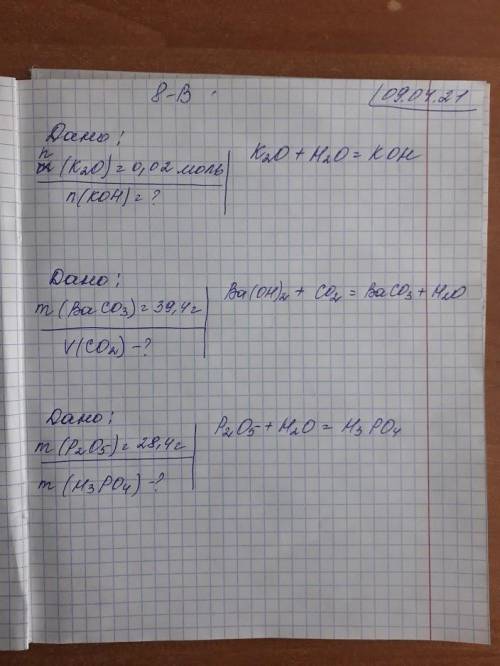 8-В 09.04.21
Дано:
n (K₂O) = 0,02 моль
n(KOH) = ?
K₂O + H₂O = KOH
Дано:
m (BaCO₃) = 39,4г
V(CO₂) - ?
Ba(OH)₂ + CO₂ = BaCO₃ + H₂O
Дано:
m (P₂O₅) = 28,4г
m (H₃PO₄) - ?
P₂O₅ + H₂O = H₃PO₄